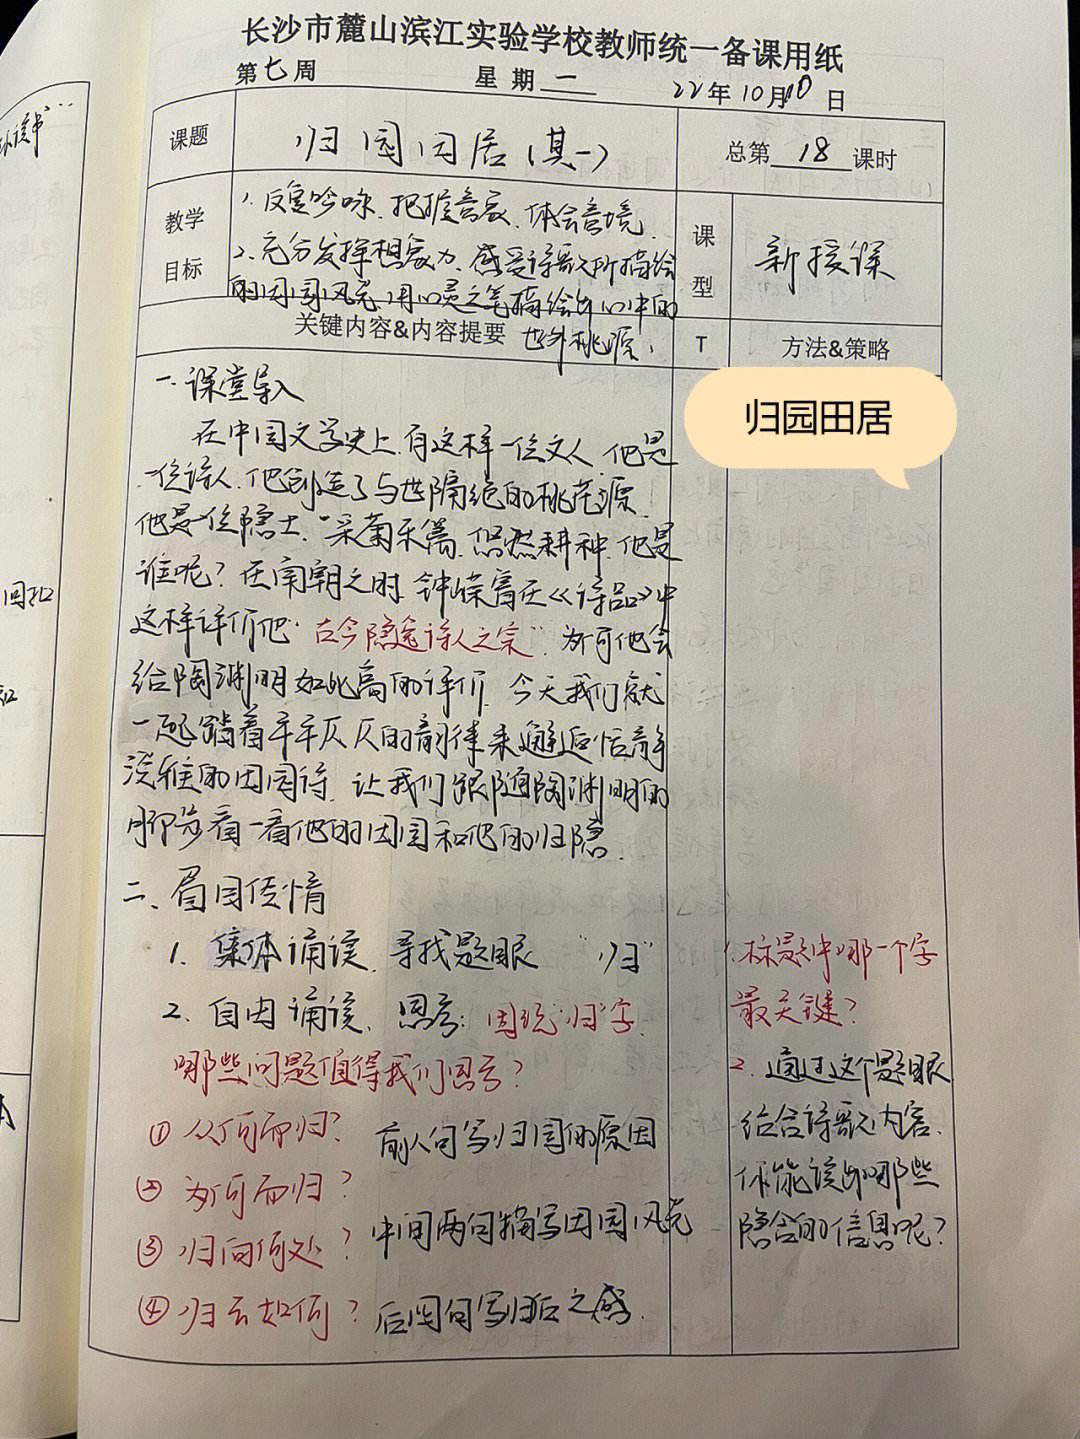 长沙市麓山滨江实验学校教师统一备课用纸
第七周 星期一 22年10月10日
课题 归园田居（其一） 总第18课时
教学目标
1. 反复吟咏，把握意象，体会意境。
2. 充分发挥想象力，感受诗歌所描绘
的田园风光，用心灵之笔描绘出心中的
世外桃源。
课型 新授课
关键内容&内容提要 T 方法&策略
归园田居
一、课堂导入
在中国文学史上，有这样一位文人，他是
一位诗人，他创造了与世隔绝的桃花源，
他是一位隐士，采菊东篱，悠然耕种，他是
谁呢？在南朝之时，钟嵘曾在《诗品》中
这样评价他“古今隐逸诗人之宗”，为何他会
给陶渊明如此高的评价，今天我们就
一起踏着平平仄仄的韵律来邂逅恬静
淡雅的田园诗，让我们跟随陶渊明的
脚步看一看他的田园和他的归隐。
二、眉目传情
1. 集体诵读，寻找题眼 “归”
2. 自由诵读，思考：围绕“归”字，
哪些问题值得我们思考？
① 从何而归？
② 为何而归？
③ 归向何处？
④ 归去如何？
前八句写归园的原因
中间两句描写田园风光
后四句写归后之感。
1. 标题中哪一个字
最关键？
2. 通过这个题眼
结合诗歌内容，
你能读出哪些
隐含的信息呢？